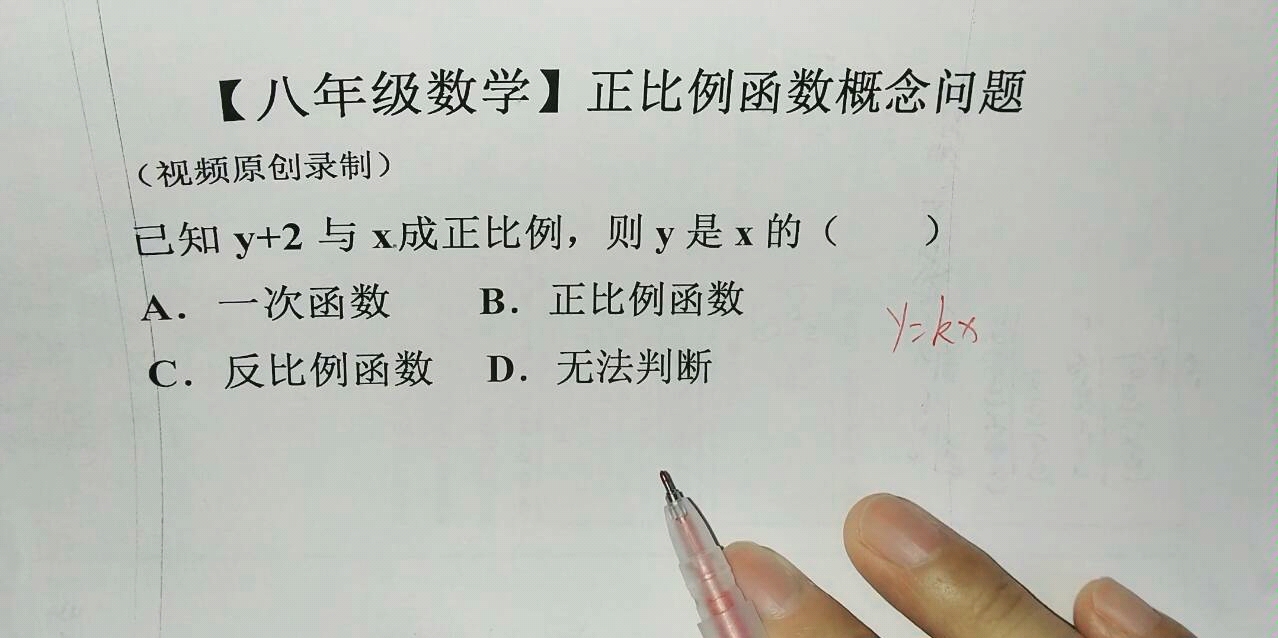 【八年级数学】正比例函数概念问题
（视频原创录制）
已知 y+2 与 x成正比例，则 y 是 x 的（　　）
A．一次函数　　B．正比例函数
y=kx
C．反比例函数　D．无法判断